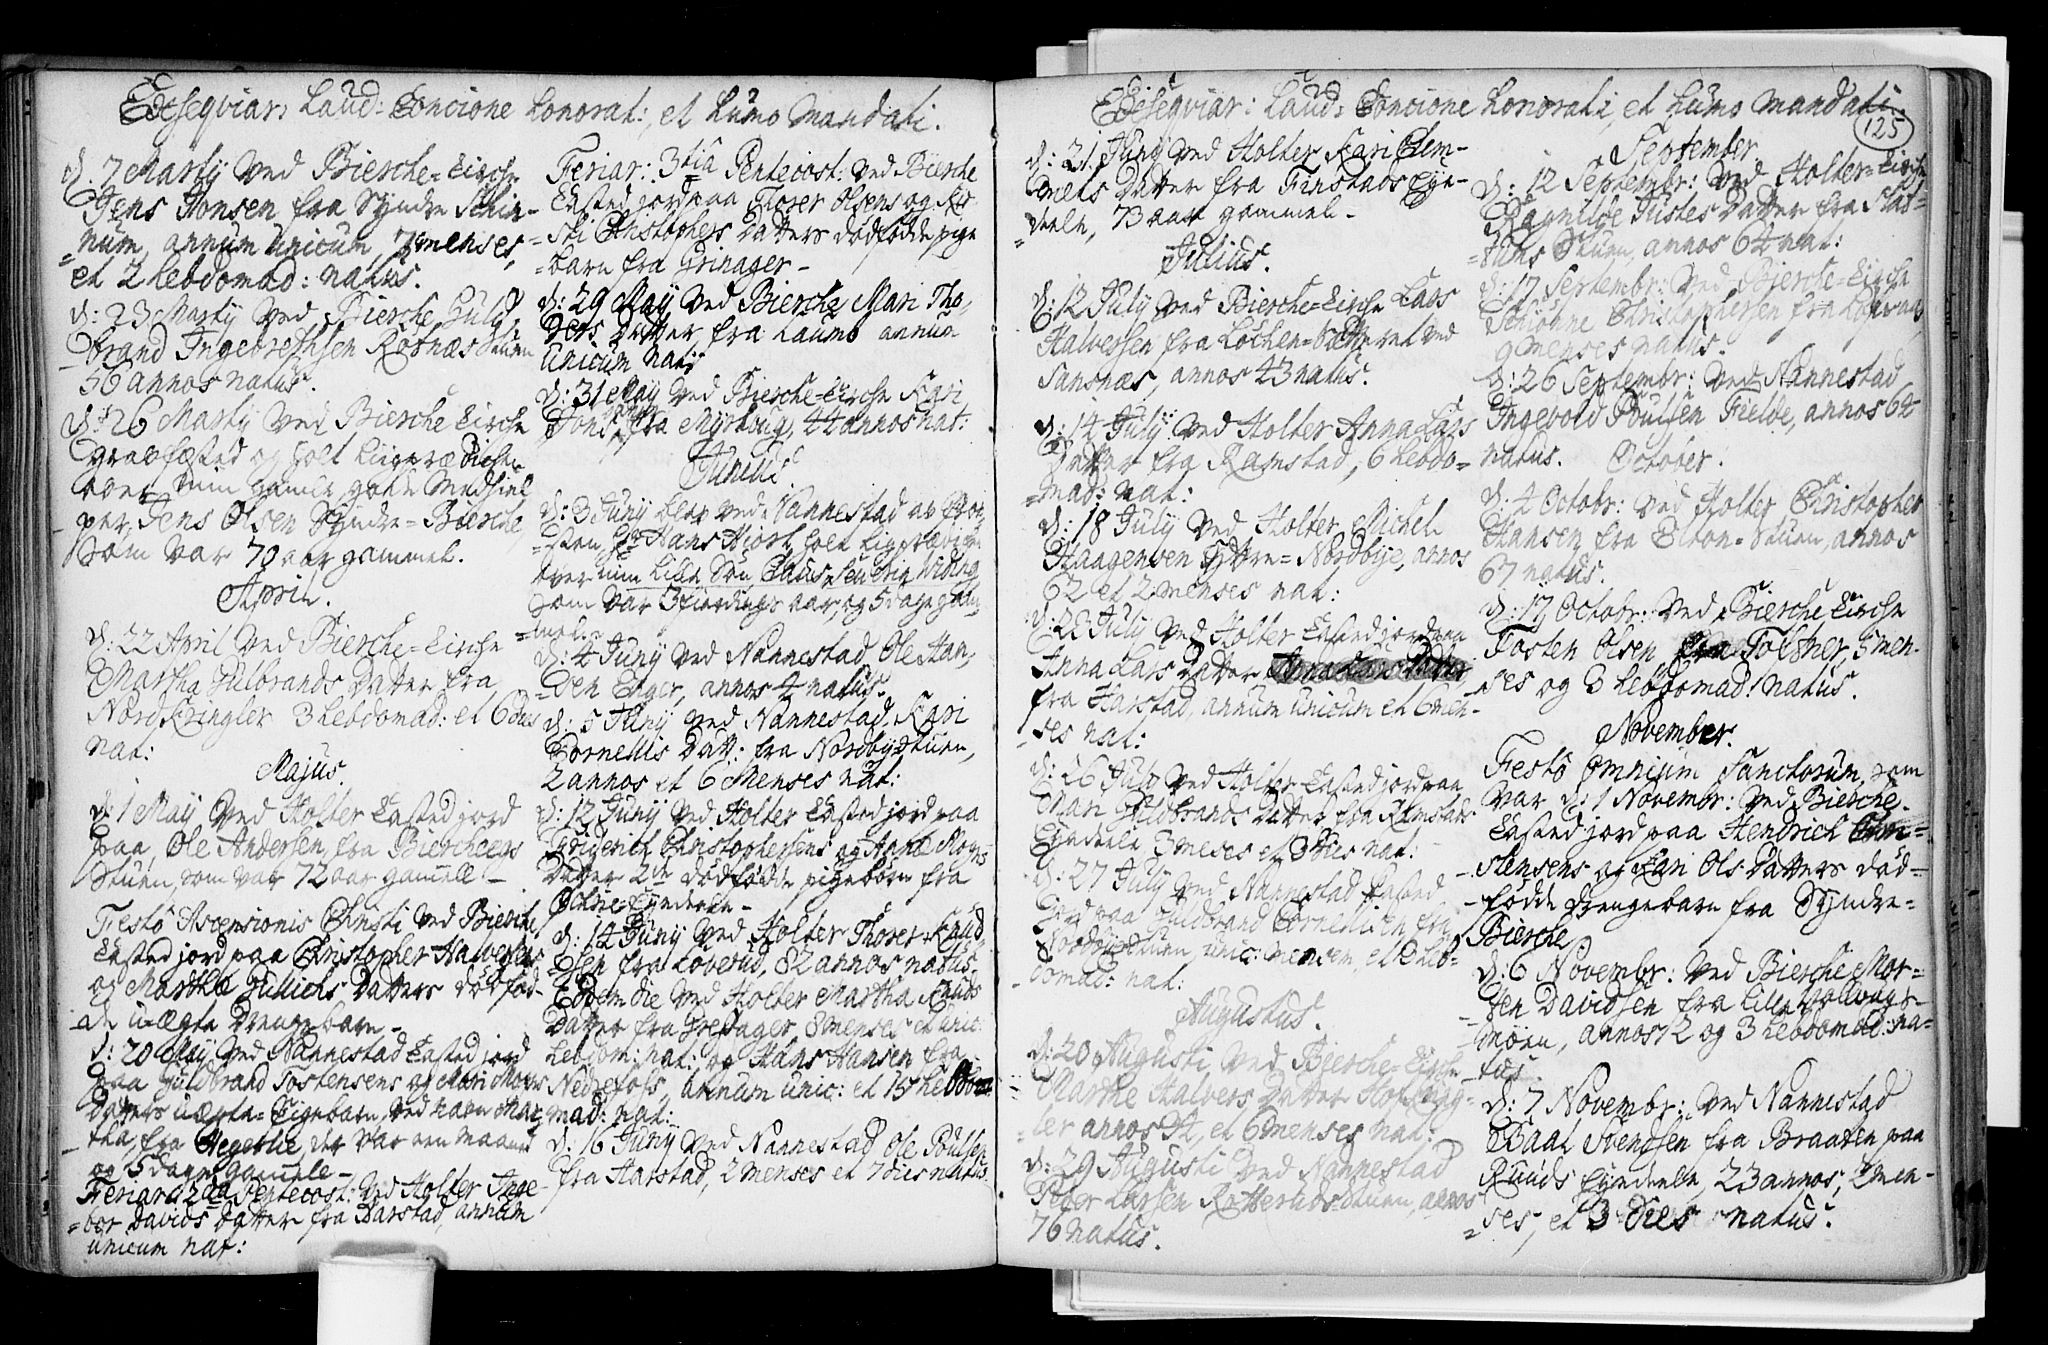 Exseqviar: Laud: Concione honorat:, et humo mandati.
d. 7 Martij ved Bierche=Kirche
Jens Jonsen fra Syndre Schin-
=num, annum unicum, 7 menses,
et 2 hebdomad: natus.
d: 23 Martij ved Bierche Guld-
brand Ingebrethsen Rosnæs Stuen
56 annos natus.
d: 26 Martij ved Bierche Kirche
gravfæsted og holt Liigprædichen
over min gamle gode Medhiel
per, Jens Olsen Syndre=Bierche,
som var 70 aar gammel.
April.
d: 22 April ved Bierche=Kirche
Martha Gulbrands Datter fra
Nordkringler 3 hebdomad: et 6 dies
nat:
Majus.
d: 1 May ved Holter Kasted jord
paa Ole Andersen fra Biercheens
Stuen, som var 72 aar gamell-
Festo Ascensionis Christi ved Bierche,
Kasted jord paa Christopher Halversens
og Marthe Gullichs Datters dødfød-
de uægte Drengebarn-
d: 20 May ved Nannestad Kasted jord
paa Guldbrand Tostensens og Mari Mons
Datters uægte=Pigebarn, ved navn Mar
tha, fra Hegerlie, der var een maaned
og 5 dage gamle-
Feriar: 2da Pentecost: ved Holter Inge-
=bor Davids Datter fra Barstad, annum
unicum nat:
Feriar: 3tia Pentecost: ved Bierche
Kasted jord paa Thorer Olsens og Kir-
=sti Christophers Datters dødfødde pige
=barn fra Grinager-
d: 29 May ved Bierche Mari Tho-
Ders Datter fra Laumb annum
unicum nat:
d: 31 May ved Bierche=Kirche Kari
Jons Datter fra Myrhoug, 44 annos nat:
Junius.
d: 3 Junij blev ved Nannestad av Pro-
=sten, Hr Hans Hiort, holt Liigprædichen
over min Lille Søn, Claus
som var 3 fierdings aar, og 5 dage gam-
=mel.
d: 4 Junij ved Nannestad Ole Han-
=sen Eger, annos 4 natus.
d: 5 Junij ved Nannestad Kari
Cornellis Datt: fra Nordbystuen,
2 annos et 6 Menses nat:
d: 12 Junij ved Holter Kasted jord paa
Friderich Christophersens og Anne Mogns
Datter 2de dødfødde pigebørn fra
Eyedeele-
d: 14 Junij ved Holter Thorer Knud-
sen fra Løverud, 82 annos natus.
Eodem die ved Holter Martha Knuds
Datter fra Gresager, 8 menses et unic:
hebdom: nat: og Hans Hansen fra
Nedrefoss, annum unic: et 15 hebdom
mad: nat:
d: 16 Junij ved Nannestad Ole Poulsen
fra Harstad, 2 menses et 7 dies natus.
Exseqviar: Laud: Concione honorati, et humo mandati.
125
d: 21 Junij ved Holter Kari Clem-
mets Datter fra Finstads Eye-
=deele, 73 aar gammel-
Julius.
d: 12 July ved Bierche=Kirche Lars
Halvessen fra Løchen=Sætteret ved
Sansnæs, annos 43 natus.
d: 14 July ved Holter Anna Lars
Datter fra Ramstad, 6 hebdo=
=mad: nat:
d: 18 July ved Holter Michel
Haagensen Yttre=Nordbye, annos
62 et 2 menses nat:
d: 22 July ved Holter Kasted jord paa
Anna Lars Datter
fra Harstad, annum unicum et 6 men-
ses nat:
d: 26 July ved Holter Kasted jord paa
Mari Guldbrands Datter fra Ramstads
Eyedeele 3 meses et 3 dies nat:
d: 27 July ved Nannestad Kasted
jord paa Guldbrand Cornellisen fra
Nordbystuen, unic: mensem et 2 heb=
domad: nat:
Augustus.
d: 20 Augusti ved Bierche=Kirche
Marthe Halvers Datter Hof
ler annos 54, et 6 menses nat:
d: 29 Augusti ved Nannestad
Peder Larsen Ratteruds=Stuen, annos
76 natus.
September
d: 12 Septembr: ved Holter=Kirche
Ragnilde Justes Datter fra Slat=
=tums Stuen, annos 64 nat:
d: 17 Septembr: ved Bierche=Kirche
Schiønne Christophersen fra
9 menses natus.
d: 26 Septembr: ved Nannestad
Ingevold Poulsen Fielde, annos 64
natus.
October.
d: 4 Octobr: ved Holter Christopher
Hansen fra Elton=Stuen, annos
67 natus.
d: 17 Octobr: ved Bierche Kirche
Tosten Olsen fra Tolsher, 5 men-
ses og 3 hebdomad: natus.
November.
Festo Omnium Sanctorum, som
var d: 1 Novembr: ved Bierche
Kasted jord paa Hendrich Chri=
stensens og Kari Ols Datters død=
fødde Drengebarn fra Syndre=
Bierche
d: 6 Novembr: ved Bierche Mor=
ten Davidsen fra Lille
Moen, annos 2 og 3 hebdomad: na=
tus.
d: 7 Novembr: ved Nannestad
Baal Svendsen fra Braaten paa
Ruuds Eyedeele, 23 annos, 2 men-
ses, et 3 dies natus.